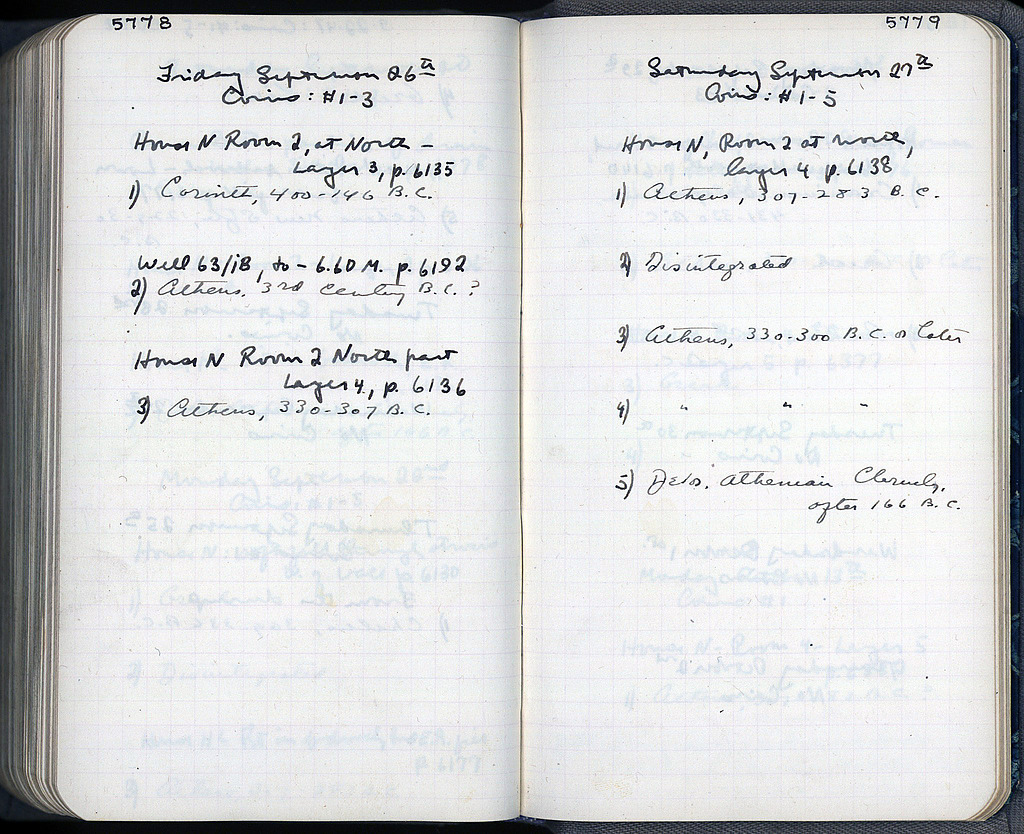 5778
Friday September 26th
Coins: #1-3
House N Room 2, at North -
Layer 3, p. 6135
1) Corinth, 400-146 B.C.
Well 63/18, to - 6.60 M. p. 6192
2) Athens, 3rd century B.C.?
House N Room 2 North part
Layer 4, p. 6136
3) Athens, 330-307 B.C.
5779
Saturday September 27th
Coins: #1-5
House N, Room 2 at North,
layer 4 p. 6138
1) Athens, 307-283 B.C.
2) Disintegrated
3) Athens, 330-300 B.C. or later
4) " " "
5) Delos, Athenian Cleruchy,
after 166 B.C.